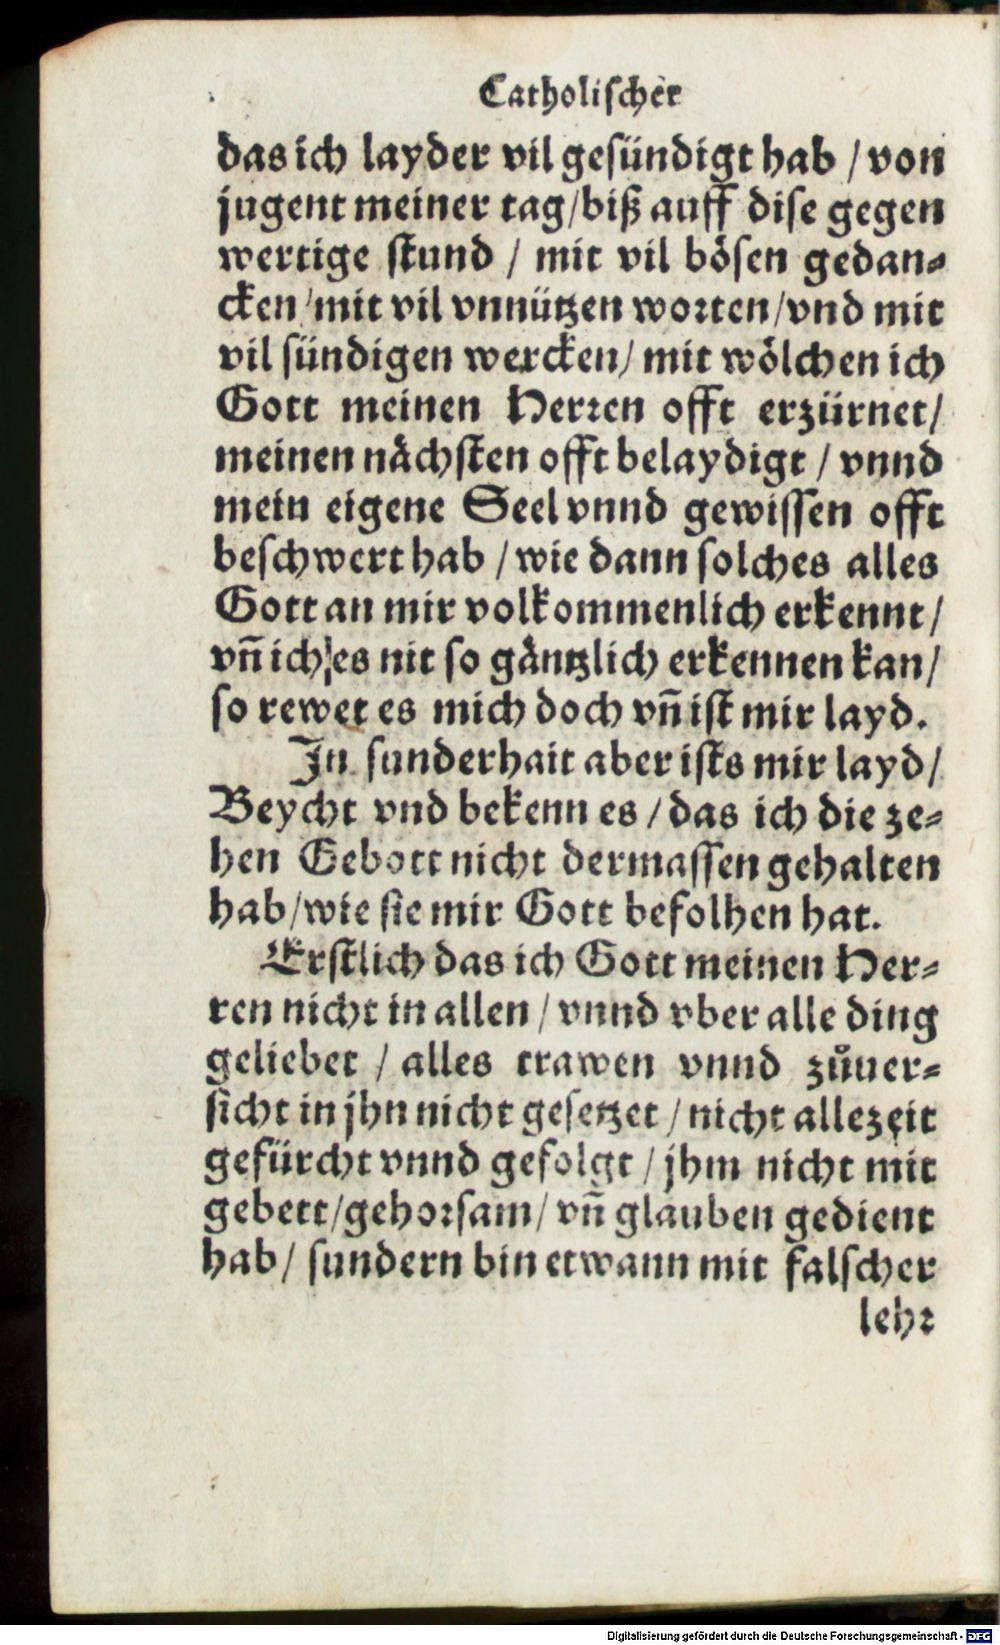 Catholischer
das ich layder vil gesündigt hab / von
jugent meiner tag/biß auff dise gegen
wertige stund / mit vil bösen gedan⸗
cken/mit vil vnnützen worten/vnd mit
vil sündigen wercken/ mit wölchen ich
Gott meinen Herren offt erzürnet/
meinen nächsten offt belaydigt / vnnd
mein eigene Seel vnnd gewissen offt
beschwert hab / wie dann solches alles
Gott an mir volkommenlich erkennt/
vñ ich es nit so gäntzlich erkennen kan/
so rewet es mich doch vñ ist mir layd.
In sunderhait aber ists mir layd/
Beycht vnd bekenn es / das ich die ze⸗
hen Gebott nicht dermassen gehalten
hab/wie sie mir Gott befolhen hat.
Erstlich das ich Gott meinen Her⸗
ren nicht in allen / vnnd vber alle ding
geliebet / alles trawen vnnd zůuer⸗
sicht in jhn nicht gesetzet / nicht allezeit
gefürcht vnnd gefolgt / jhm nicht mit
gebett/gehorsam/ vñ glauben gedient
hab/ sundern bin etwann mit falscher
lehr
Digitalisierung gefördert durch die Deutsche Forschungsgemeinschaft - DFG